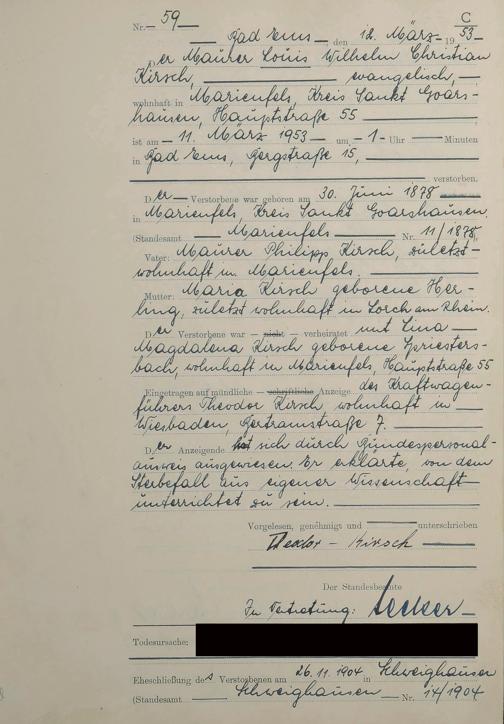 C
Nr. 59
Bad Ems, den 12. März 1953
Der Maurer Louis Wilhelm Christian
Kirsch, evangelisch,
wohnhaft in Marienfels, Kreis Sankt Goars-
hausen, Hauptstraße 55
ist am 11. März 1953 um 1 Uhr Minuten
in Bad Ems, Bergstraße 15,
verstorben.
Der Verstorbene war geboren am 30. Juni 1878
in Marienfels, Kreis Sankt Goarshausen.
(Standesamt Marienfels Nr. 11/1878)
Vater: Maurer Philipp Kirsch, zuletzt
wohnhaft in Marienfels.
Mutter: Maria Kirsch geborene Her-
ling, zuletzt wohnhaft in Lorch am Rhein.
Der Verstorbene war — nicht — verheiratet mit Lina
Magdalena Kirsch geborene Spriesters-
bach, wohnhaft in Marienfels, Hauptstraße 55
Eingetragen auf mündliche — schriftliche Anzeige des Kraftwagen-
führers Theodor Kirsch, wohnhaft in
Wiesbaden, Bertramstraße 7.
Der Anzeigende hat sich durch Bundespersonal-
ausweis ausgewiesen. Er erklärte, von dem
Sterbefall aus eigener Wissenschaft
unterrichtet zu sein.
Vorgelesen, genehmigt und unterschrieben
Theodor Kirsch
Der Standesbeamte
In Vertretung:
Todesursache:
Eheschließung des Verstorbenen am 26.11.1904 in Schweighausen
(Standesamt Schweighausen Nr. 14/1904)